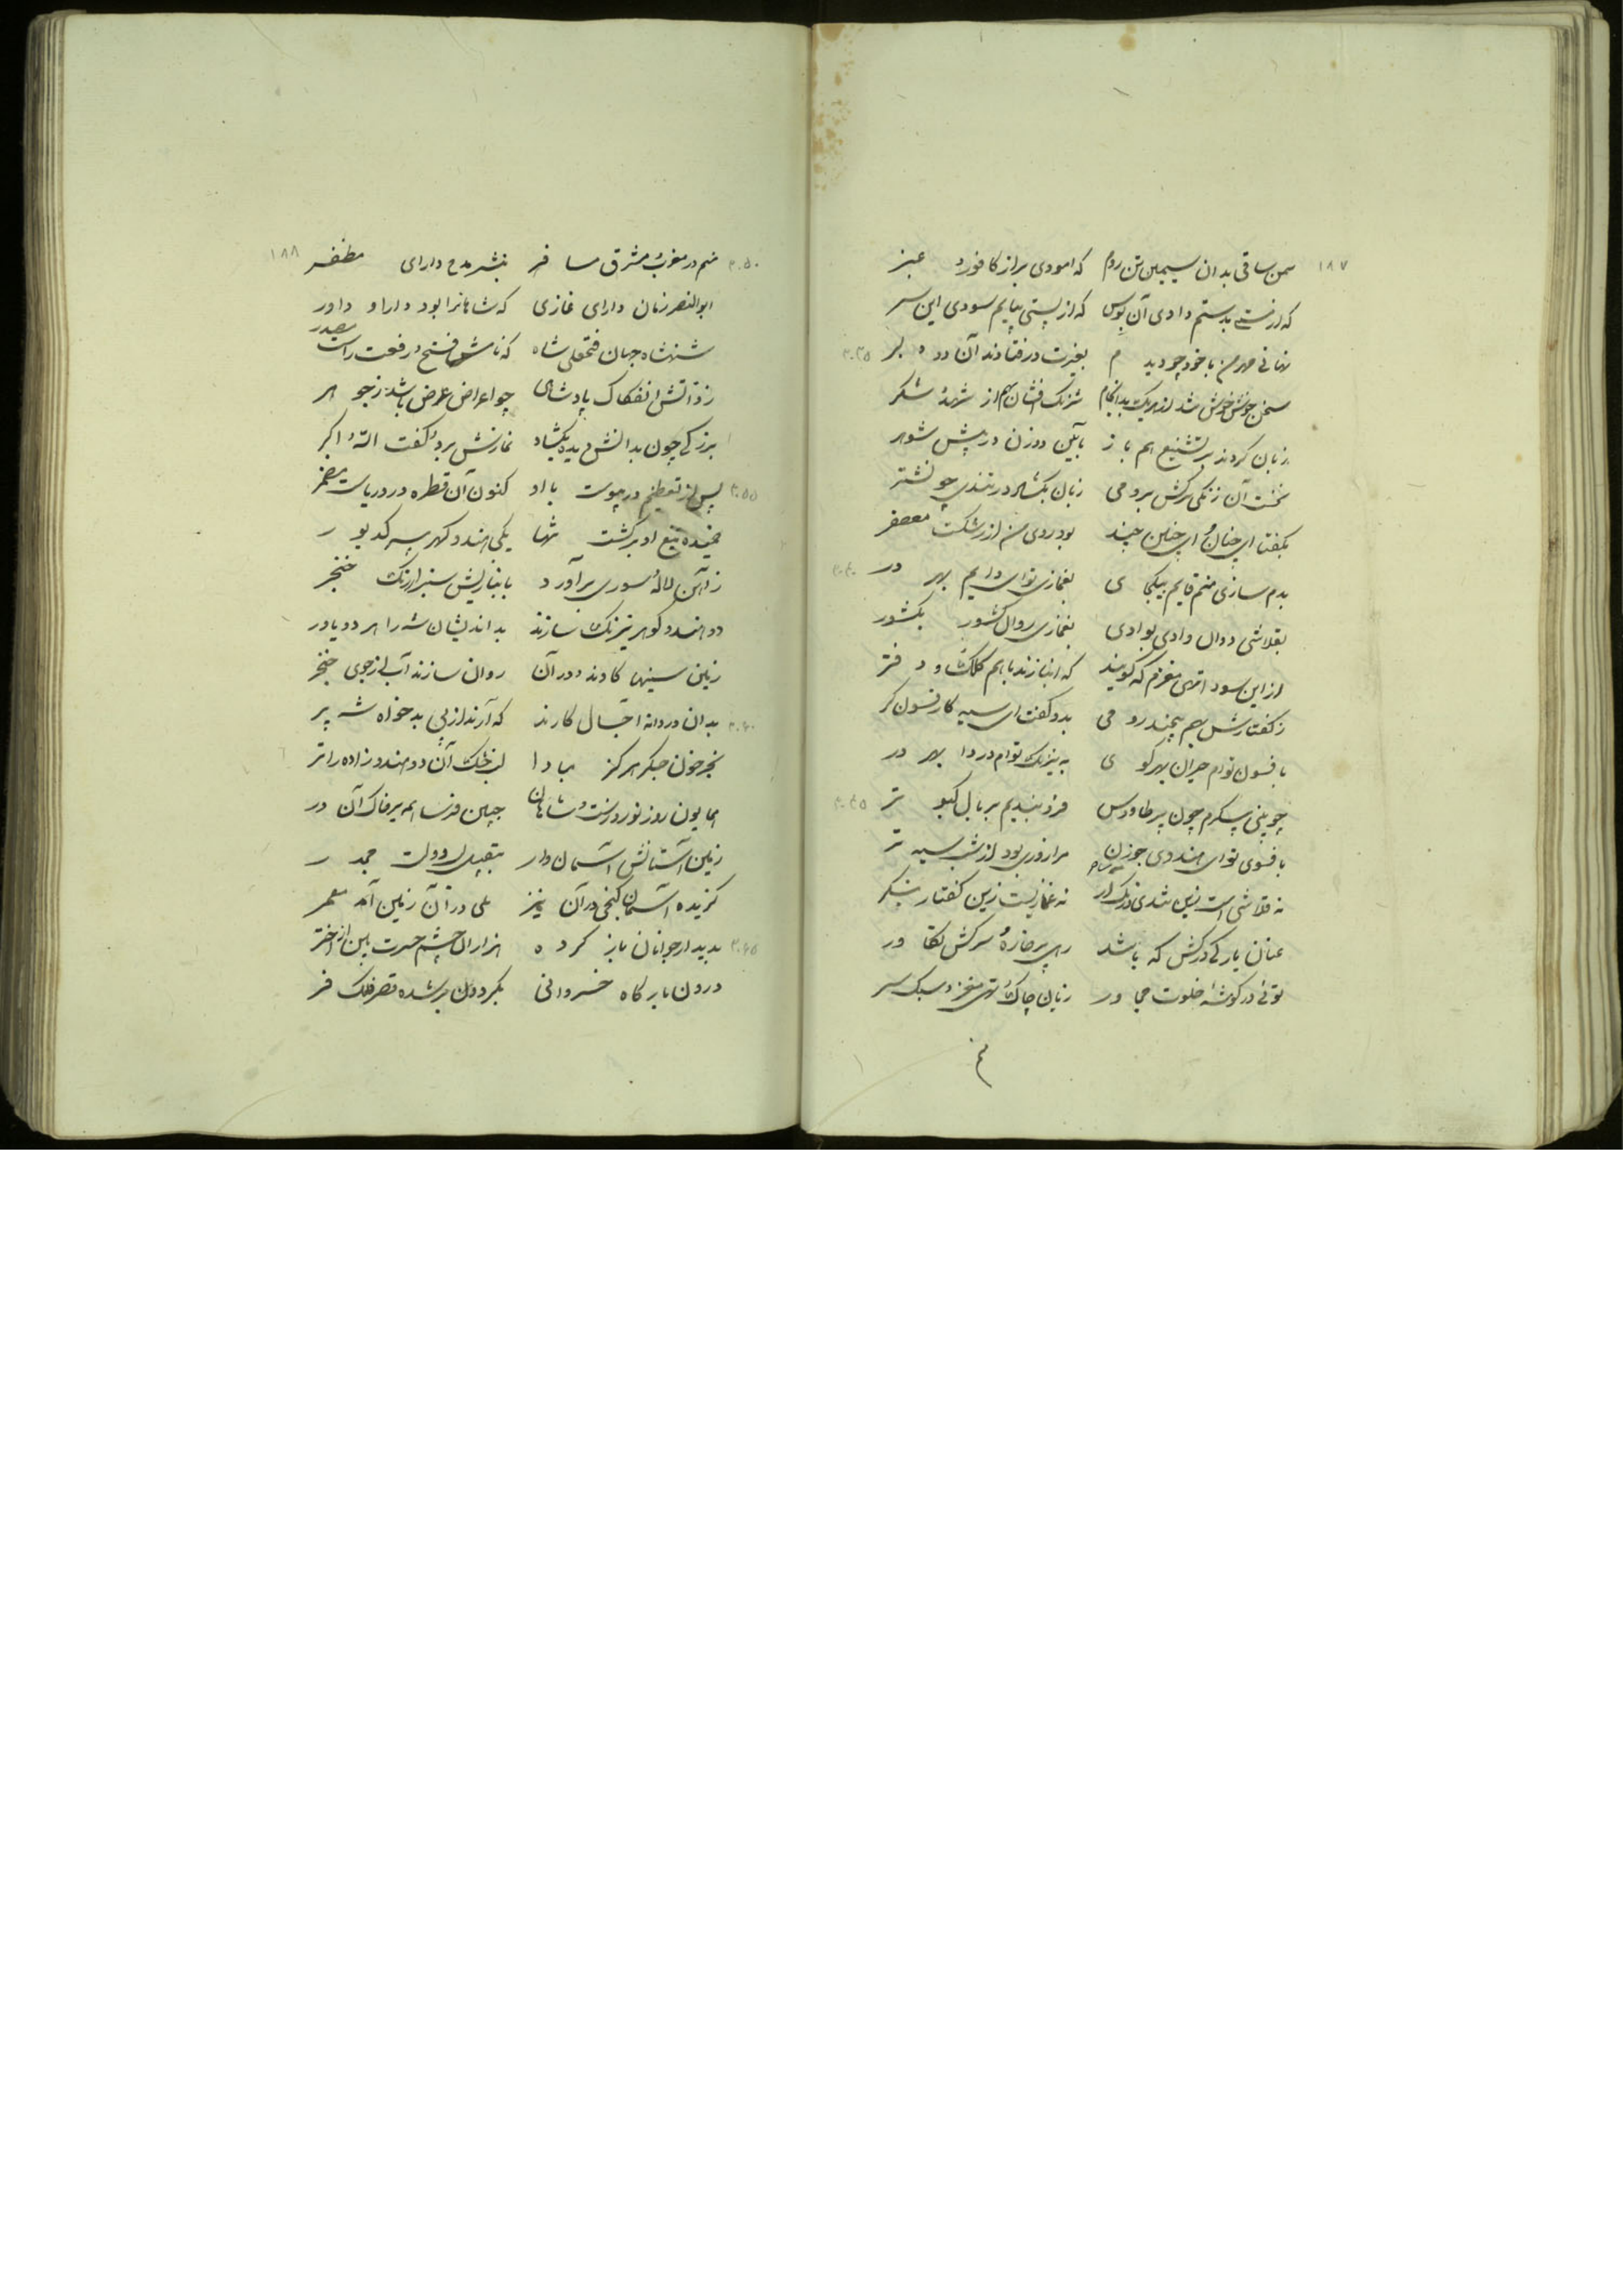 ۱۸۷
سمن ساقی بدان سیمین تن روم که امودی براز کافور و عنبر
که از مستی بدستم دادی آن بوس که از پستی بپایم سودی این سر
نهانی مهر من با خود چو دیدم بغیرت در فتادند آن دو دلبر ۳۰۳۵
سخن خوش خوش شد از هر یک بدانجام شرنک افشان بهم از شهد شکر
زبان کردند بر تشنیع هم باز بآیین دو زن در پیش شوهر
نخست آن زنگی سرکش برومی زبان بگشاد در تندی چو نشتر
بگفتا ای چنان و ای چنین چند بود روی من از رشکت معصفر
بدم سازی منم قایم بیکجای بغمازی توای دایم بهر در ۳۰۴۰
بقلاشی دوان وادی بوادی بغمازی روان کشور بکشور
از این سودا تهی مغزم که گویند که انبازند باهم کلک و دفتر
ز گفتارش بهم پیچید رومی بدو گفت ای سیه کار فسونگر
بافسون توام حیران بهر کوی به نیرنک توام در وا بهر در
چو بینی پیکرم چون پر طاوس فرو بندیم بر بال کبوتر ۳۰۴۵
بافسوی توای هندوی جوزن مرا روزی بود از شب سیه تر
نه قلاشی است این
نه غمازیست زین گفتار بنگر
عنان بارگی درکش که باشد رهی پر خاره و سرکش تکاور
توئی در گوشه خلوت مجاور زبان چاک و تهی مغز و سبک سر
منم
۱۸۸
منم در مغرب و مشرق مسافر بنشر مدح دارای مظفر ۳۰۵۰
ابوالنصر زمان دارای غازی که شاهانرا بود دارا و داور
شنهشاه جهان فتحعلی شاه که نامش فتح و رفعت راست مصدر
ز ذاتش انفکاک پادشاهی چو اعراض عرض باشد ز جوهر
بزرگی چون بدانش دیده بگشاد نمازش برد و گفت الله اکبر
پس از تعظیم در پیوست با او کنون آن قطره در دریاست مضمر ۳۰۵۵
خمیده تیغ او بر کشت
یکی هندو گهر پیر کدیور
ز آهن لاله سوری برآورد
خنجر
دو هندو گوهر نیرنک سازند بداندیشان شه را هر دو یاور
زمین سینها کاوند و در آن روان سازند آبی از جوی خنجر
بدان در دانه اجال کارند که آرند از پی بدخواه شه بر ۳۰۶۰
بجز خون جگر هرگز مبادا لب خشک آن دو هندوزاده را تر
همایون روز نوروزست و شاهان جبین فرسا همه بر خاک آن در
زمین آستانش آسمان وار بتقبیل دولت مجدر
گزیده آسمان کنجی در آن نیز بلی در آن زمین آمد معمر
بدیدار جوانان باز کرده هزاران چشم حسرت بین از اختر ۳۰۶۵
درون بارگاه خسروانی بگردون بر شده قصر فلک فر